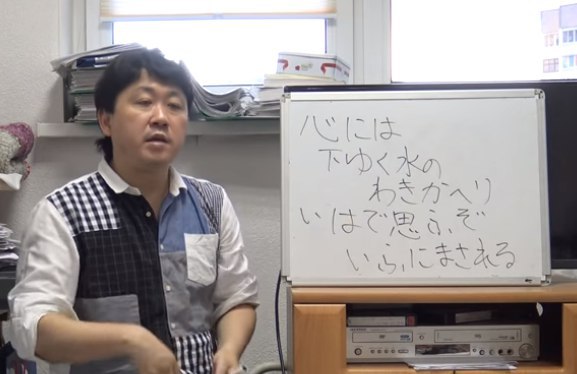 心には
下ゆく水の
わきかへり
いはで思ふぞ
いふにまされる